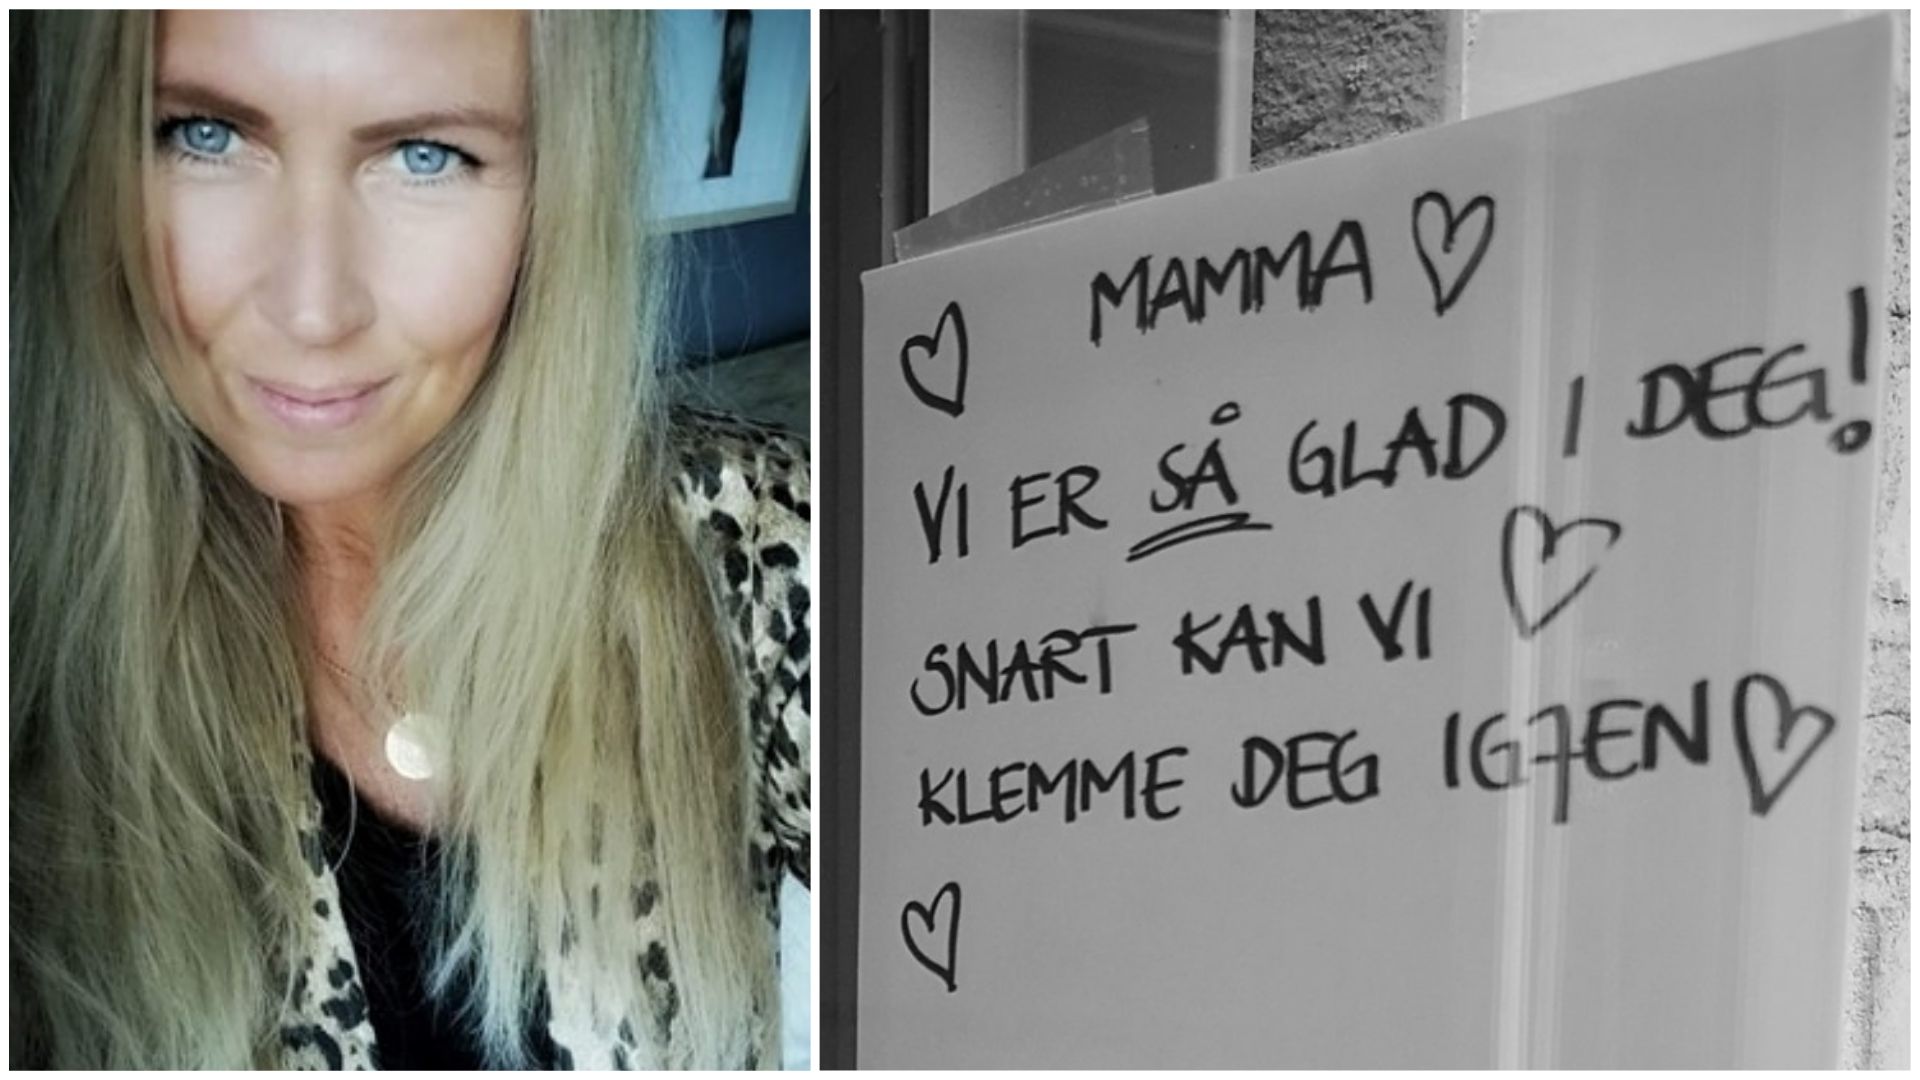 MAMMA
VI ER SÅ GLAD I DEG!
SNART KAN VI
KLEMME DEG IGJEN